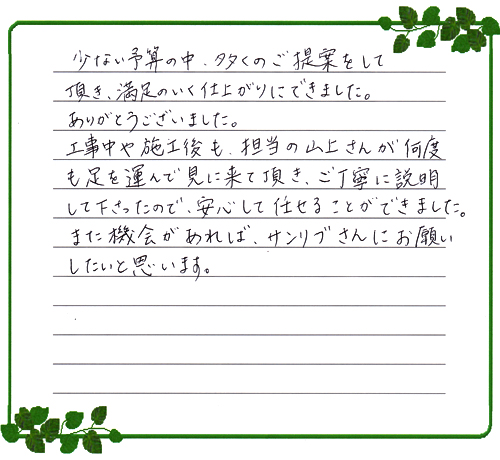 少ない予算の中、多くのご提案をして
頂き、満足のいく仕上がりにできました。
ありがとうございました。
工事中や施工後も、担当の山上さんが何度
も足を運んで見に来て頂き、ご丁寧に説明
して下さったので、安心して任せることができました。
また機会があれば、サンリブさんにお願い
したいと思います。